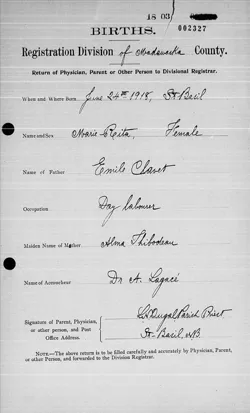 18 03
002327
BIRTHS.
Registration Division of Madawaska County.
Return of Physician, Parent or Other Person to Divisional Registrar.
When and Where Born June 24th 1918, St Basil
Name and Sex Marie Rita, Female
Name of Father Emile Clavet
Occupation Day labourer
Maiden Name of Mother Alma Thibodeau
Name of Accoucheur Dr A. Lagacé
Signature of Parent, Physician, or other person, and Post Office Address. Dugal Parish Priest
St. Basil, NB.
NOTE.—The above return is to be filled carefully and accurately by Physician, Parent,
or other Person, and forwarded to the Division Registrar.